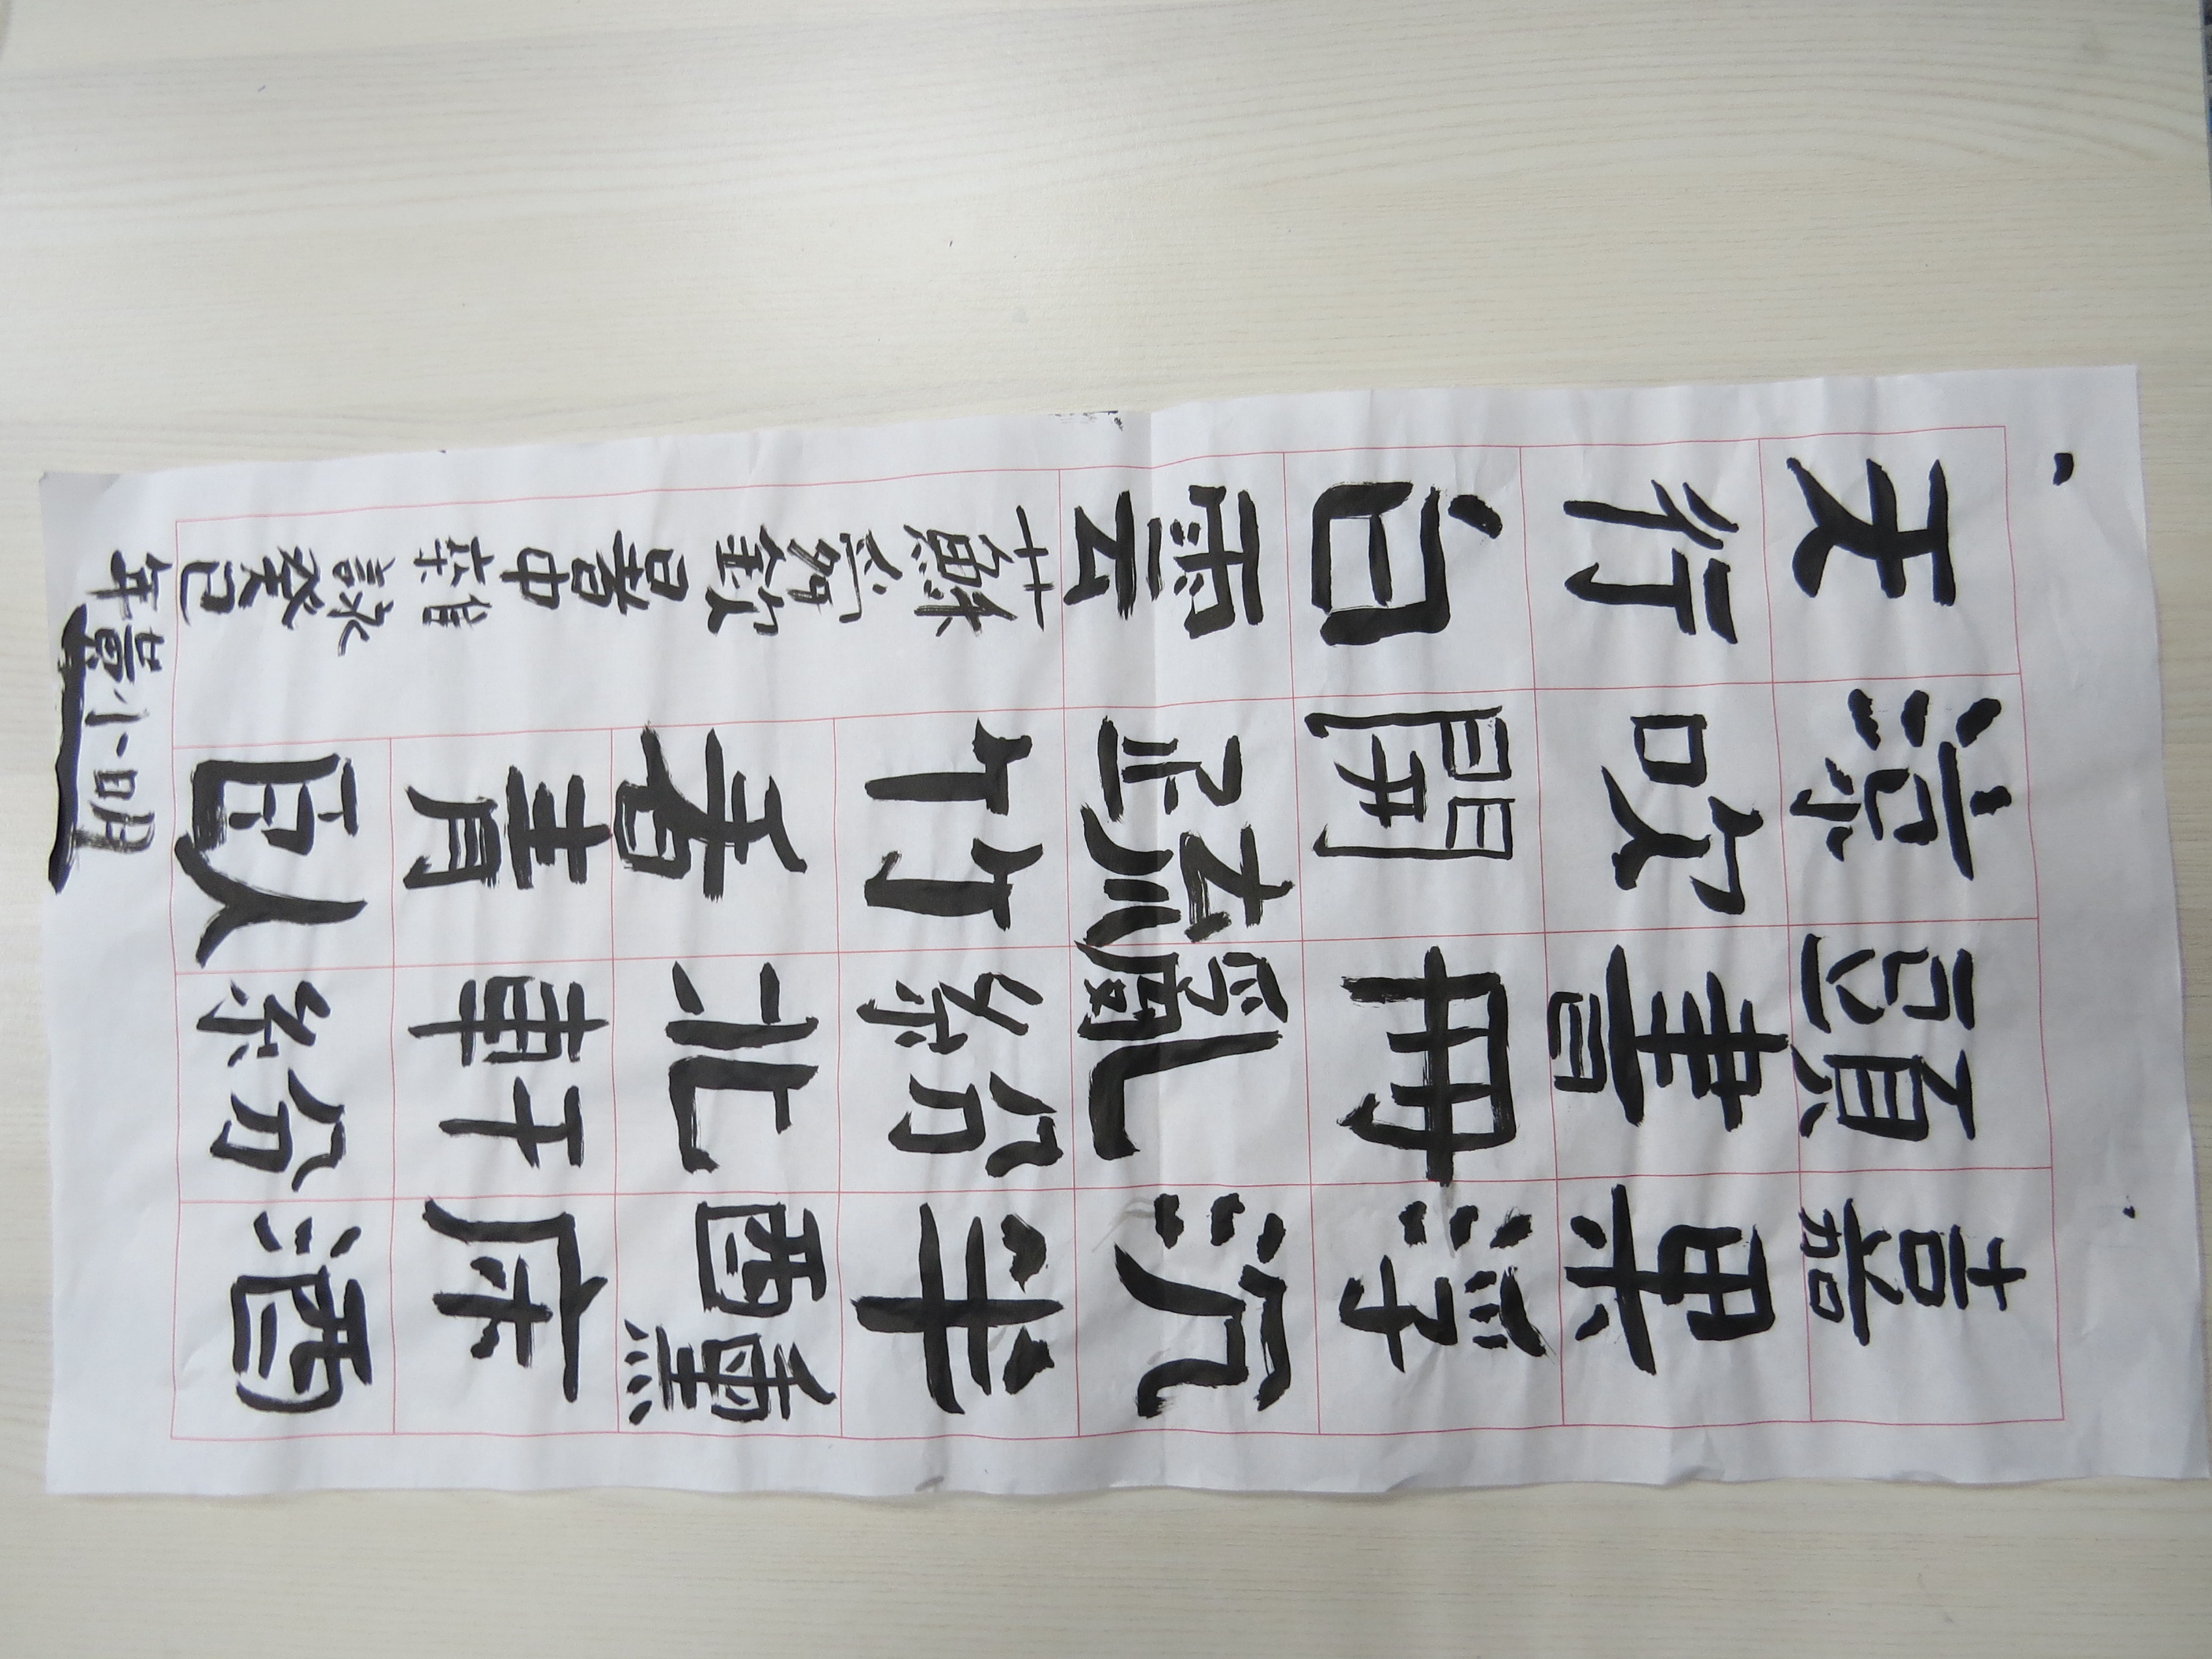 嘉果浮沉半醺床酒
頭書冊亂紛北軒紛
涼吹開疏竹看青臥
天行白雲
蘇舜欽暑中雜詠癸巳年黃小明